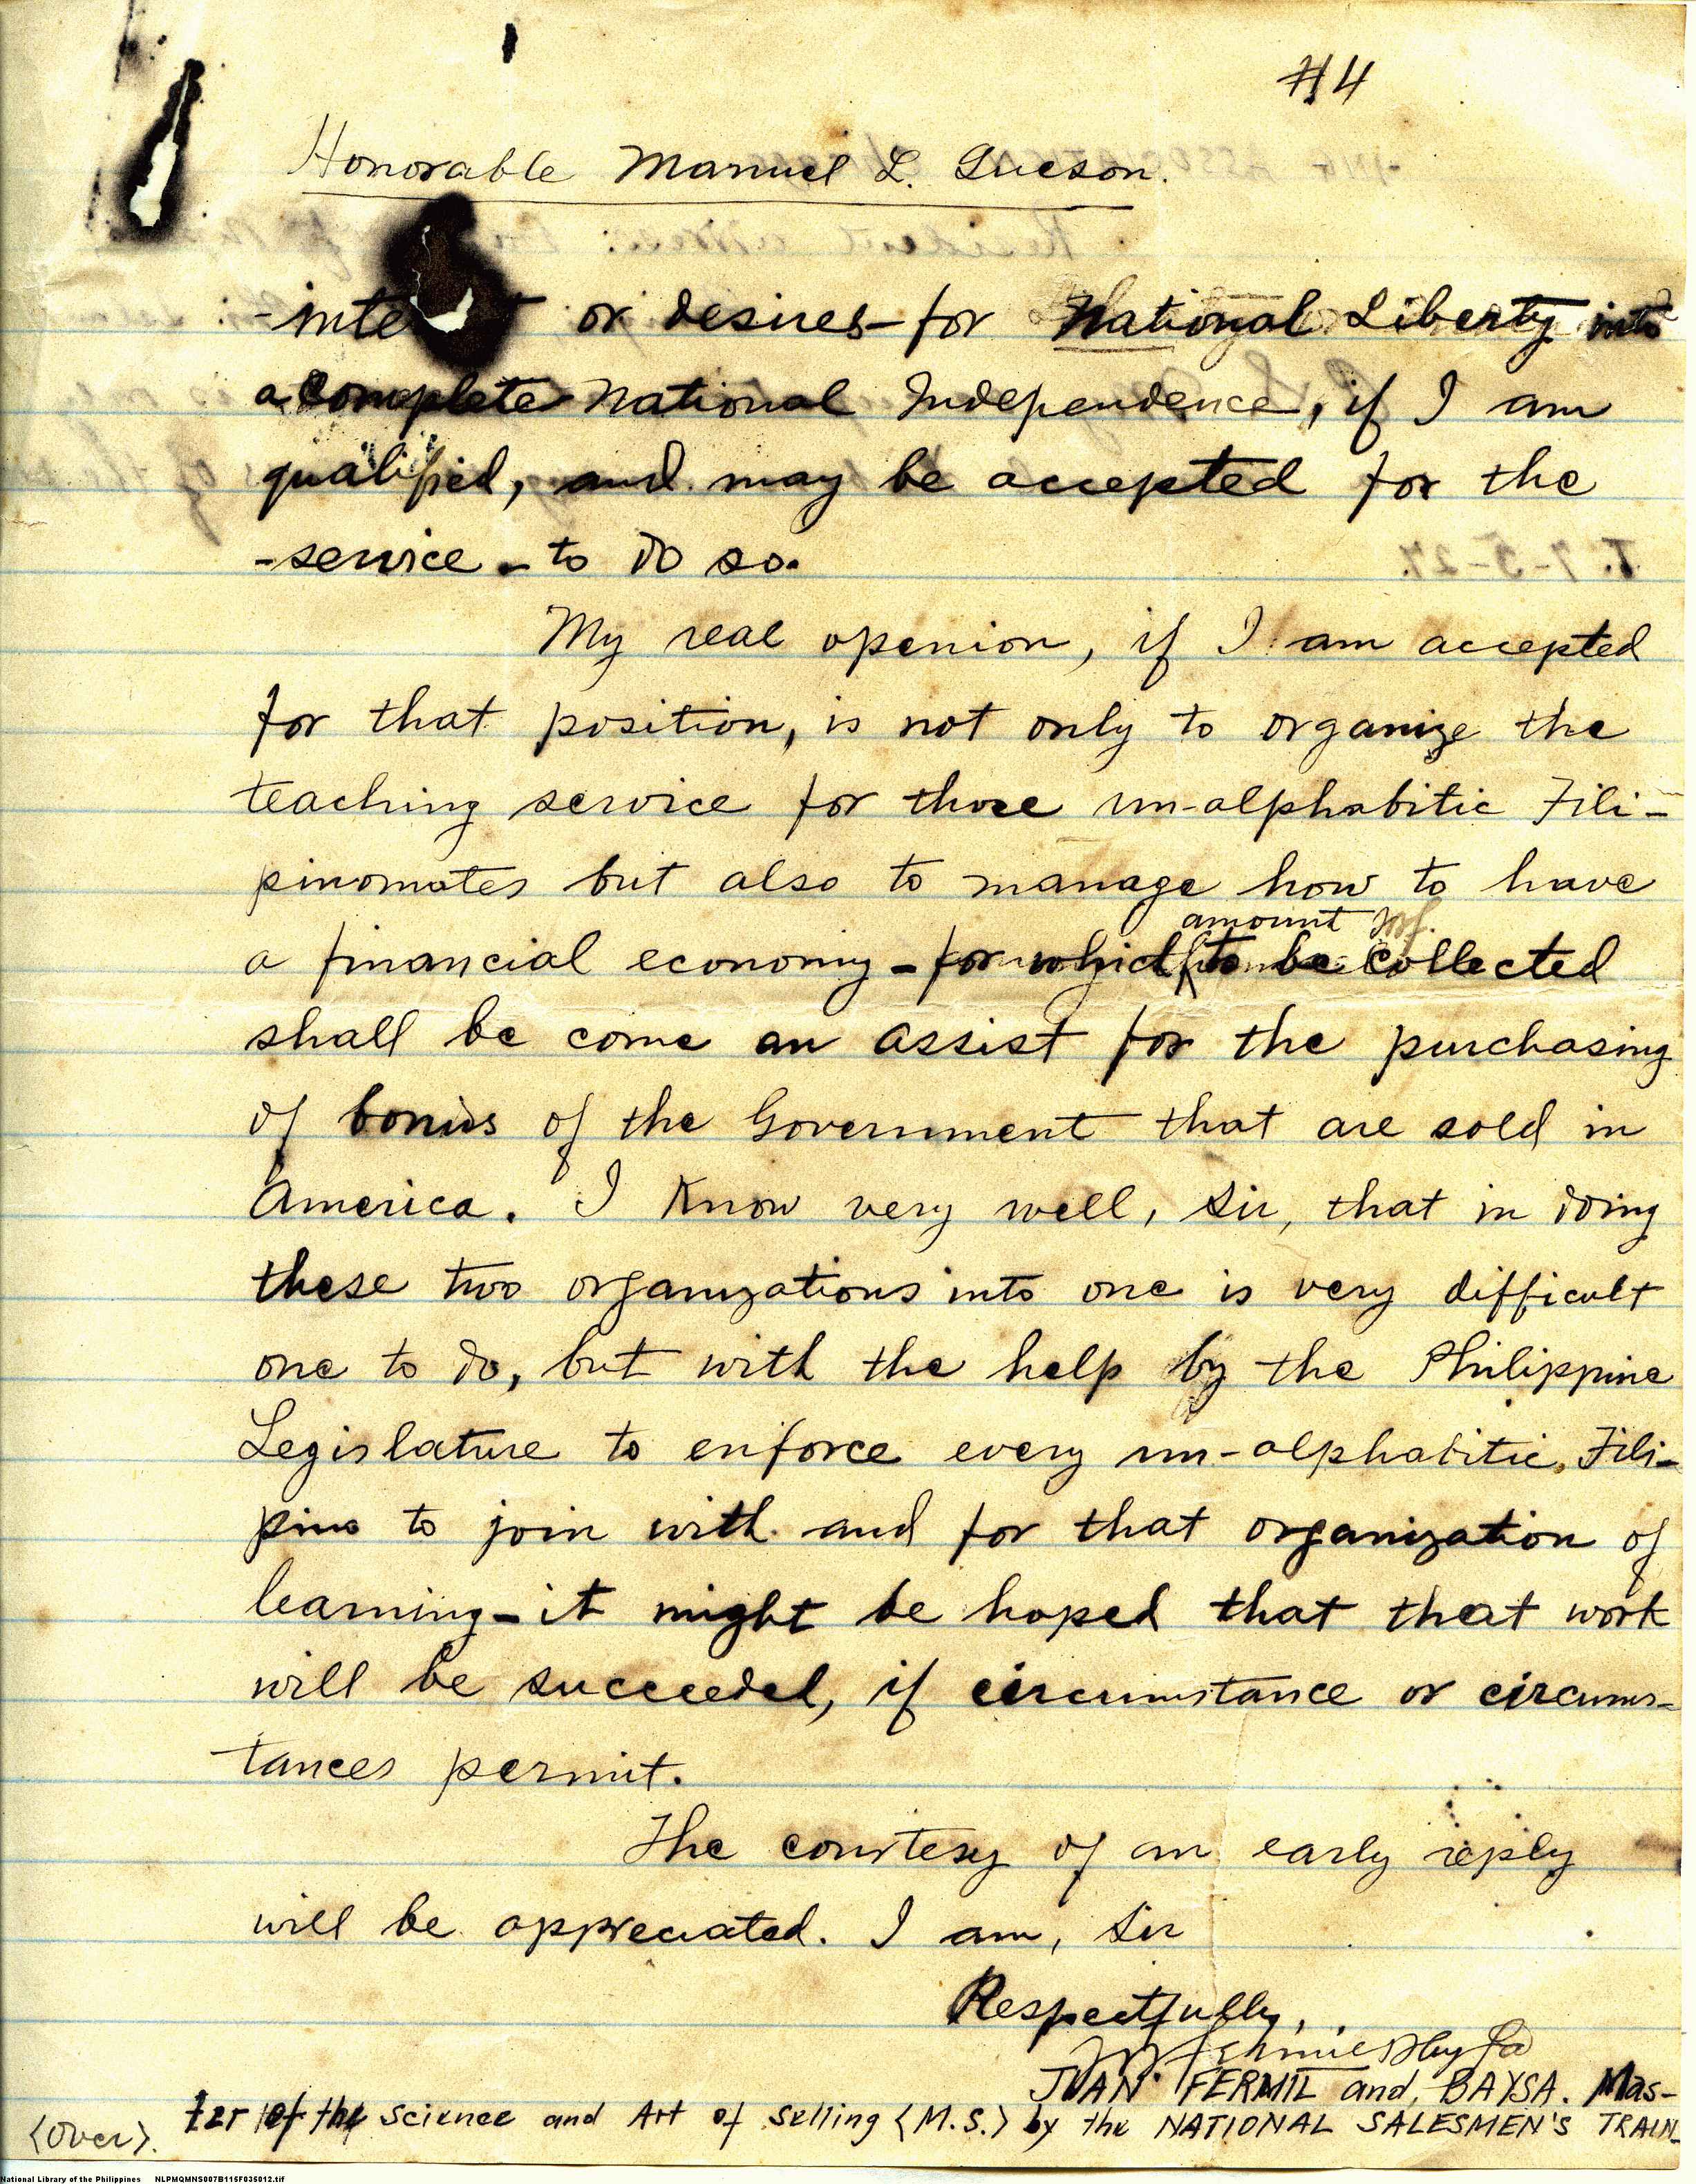 #4
Honorable Manuel L. Queson.
-inte t or desires-for National Liberty into
a complete National Independence, if I am
qualified, and may be accepted for the
-service - to do so.
My real openion, if I am accepted
for that position, is not only to organize the
teaching service for those un-alphabitic Fili-
pinomates but also to manage how to have
amount
a financial economy - for which to be collected
shall be come an assist for the purchasing
of bonds of the Government that are sold in
America. I know very well, Sir, that in doing
these two organizations into one is very difficult
one to do, but with the help by the Philippine
Legislature to enforce every un-alphabitic Fili-
pino to join with and for that organization of
learning - it might be hoped that that work
will be succeeded, if circumstance or circums-
tances permit.
The courtesy of an early reply
will be appreciated. I am, Sir
Respectfully,
JUAN FERMIL and BAYSA. Mas-
ter of the Science and Art of Selling (M.S.) by the NATIONAL SALESMEN'S TRAIN-
(Over).
National Library of the Philippines NLPMQMNS007B115F035012.tif